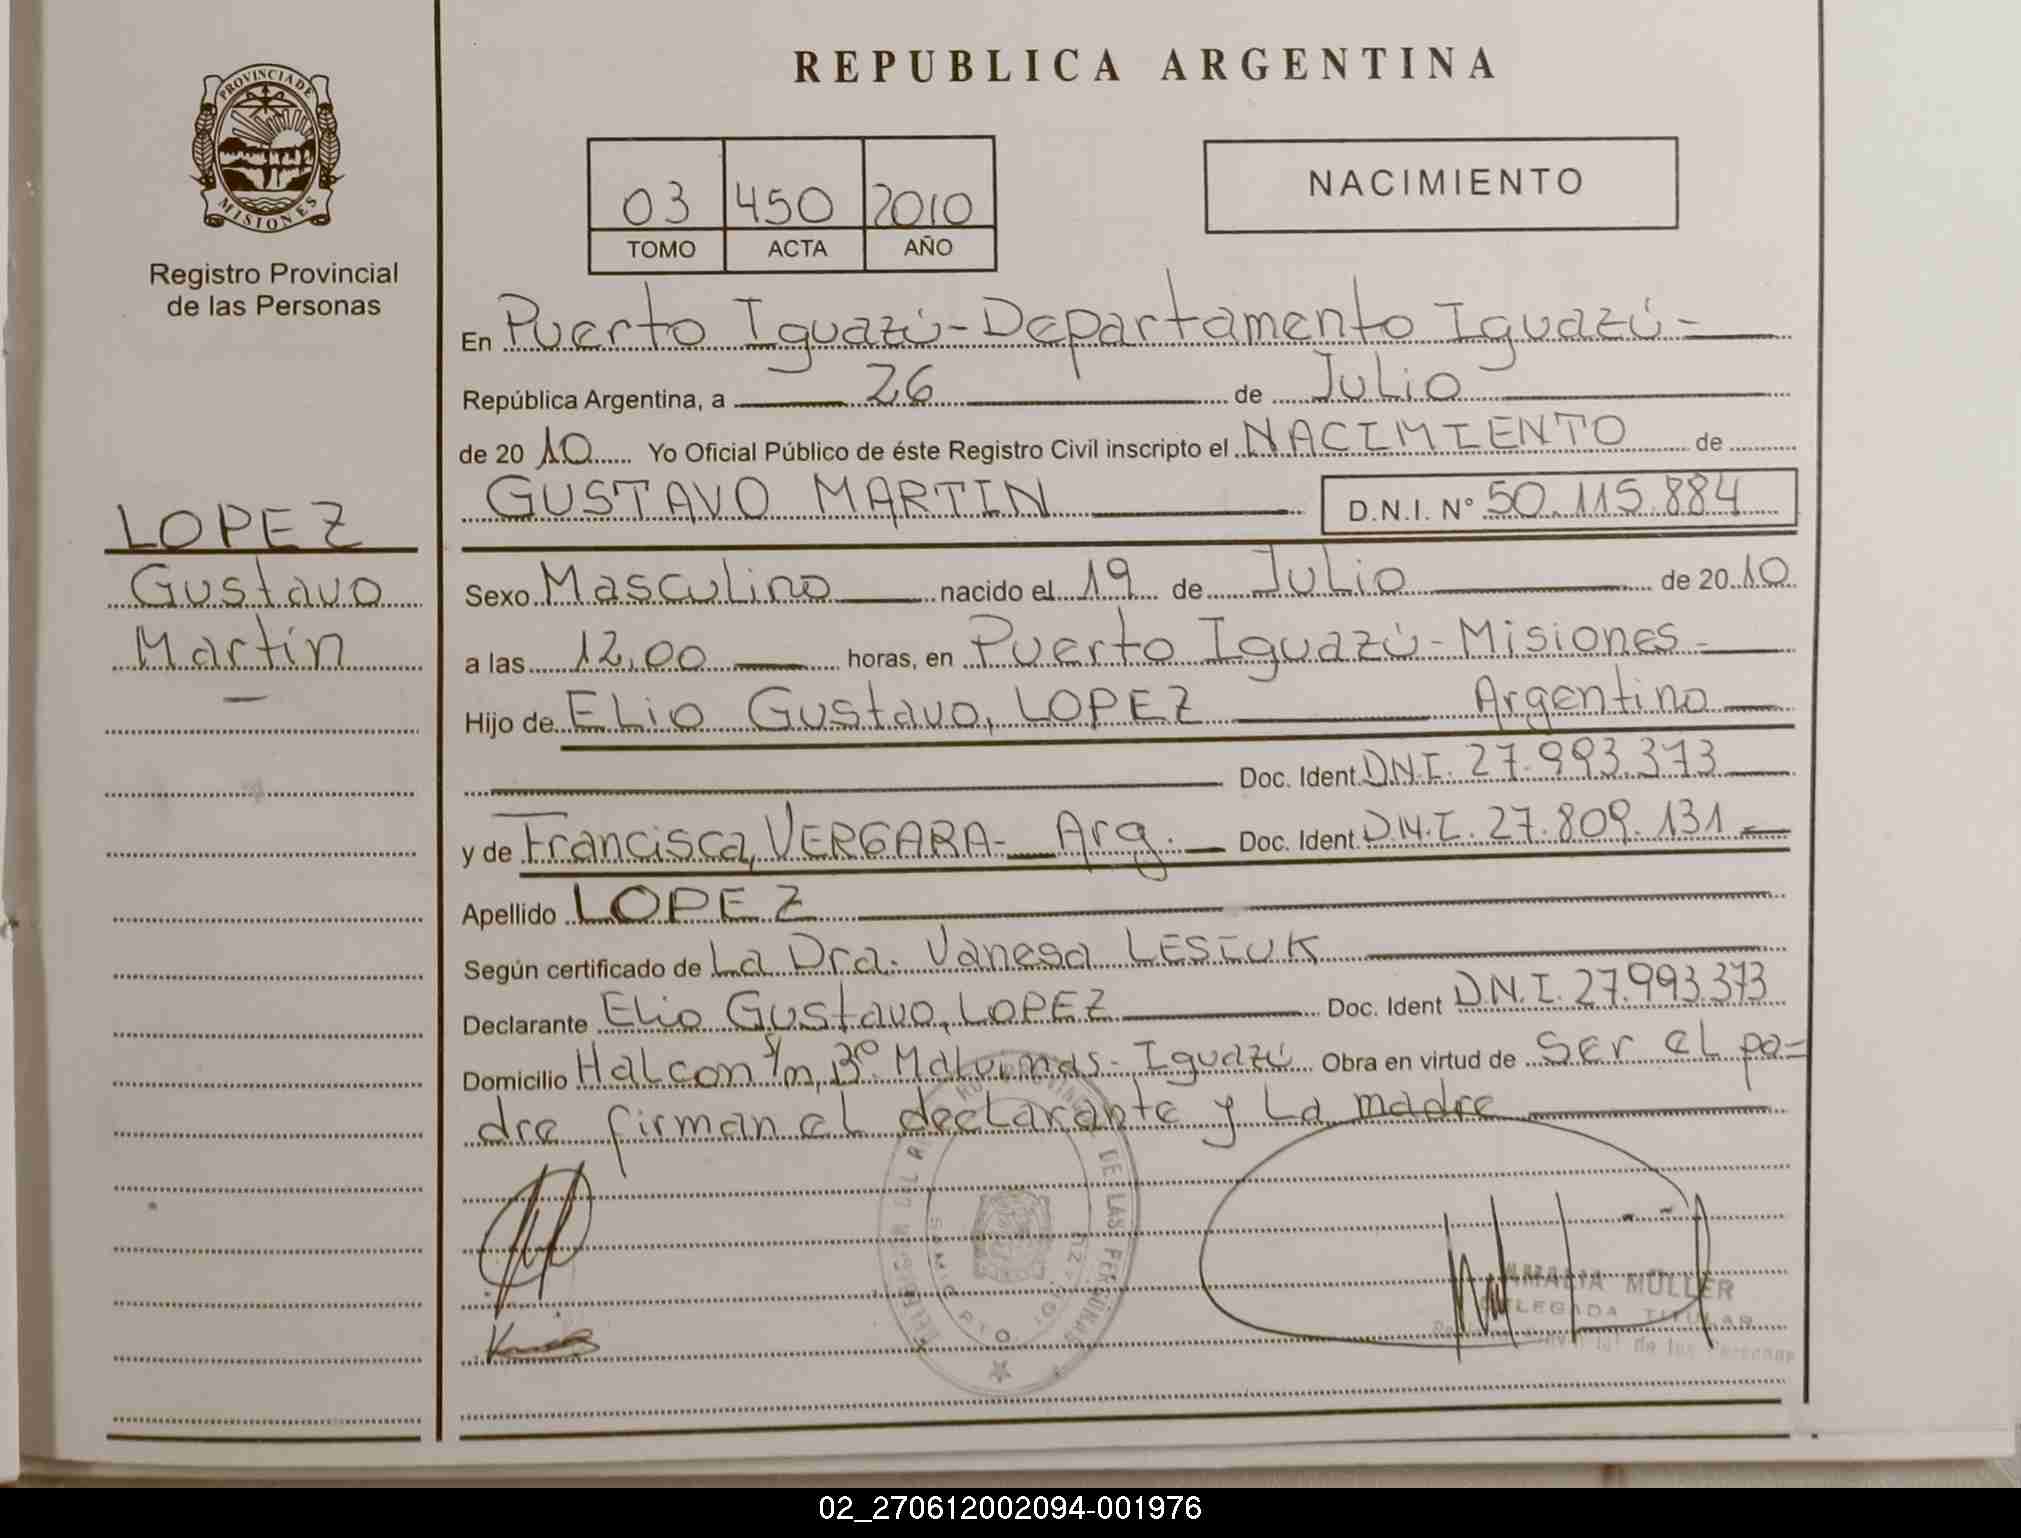 REPUBLICA ARGENTINA
PROVINCIA DE
MISIONES
Registro Provincial
de las Personas
03 450 2010
TOMO ACTA AÑO
NACIMIENTO
En Puerto Iguazú-Departamento Iguazú-
República Argentina, a 26 de Julio
de 2010 Yo Oficial Público de éste Registro Civil inscripto el NACIMIENTO de
GUSTAVO MARTIN D.N.I. N° 50.115.884
LOPEZ
Gustavo
Martín
Sexo Masculino nacido el 19 de Julio de 2010
a las 12,00 horas, en Puerto Iguazú-Misiones-
Hijo de ELio Gustavo, LOPEZ Argentino
Doc. Ident. D.N.I. 27.993.373
y de Francisca, VERGARA- Arg. Doc. Ident. D.N.I. 27.809.131
Apellido LOPEZ
Según certificado de La Dra. Vanesa LESIUK
Declarante Elio Gustavo, LOPEZ Doc. Ident D.N.I. 27.993.373
Domicilio Halcon s/n, B°. Malvinas-Iguazú Obra en virtud de ser el pa-
dre firman el declarante y La madre
DE LAS PERSONAS
AMALIA MÜLLER
DELEGADA TITULAR
de las Personas
02_270612002094-001976